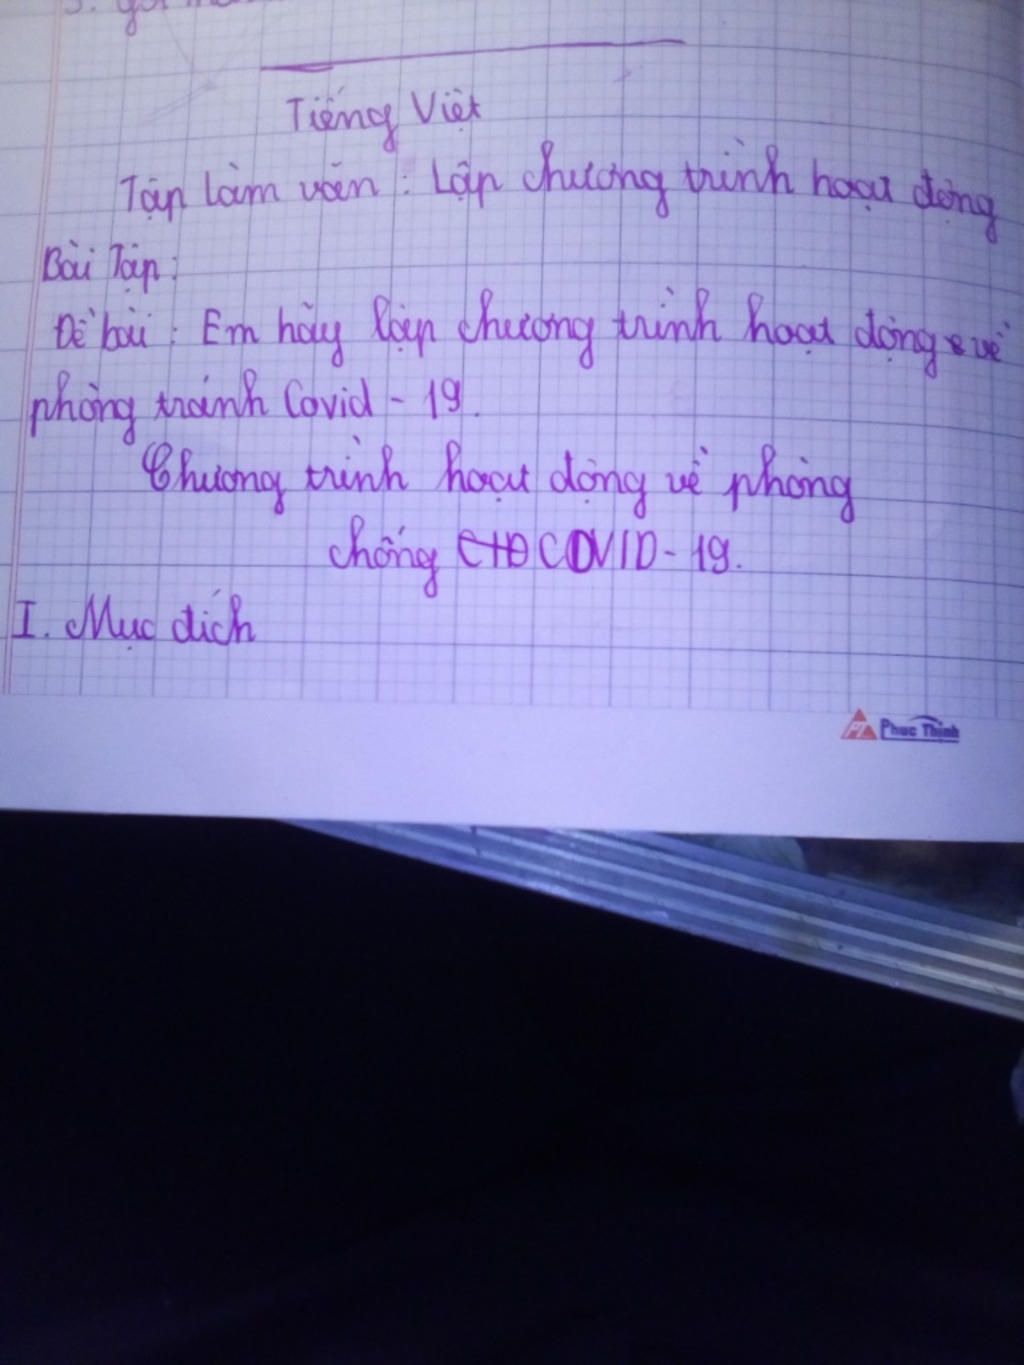 Tiếng Việt
Tập làm văn : Lập chương trình hoạt động
Bài Tập :
Đề bài : Em hãy lập chương trình hoạt động về
phòng tránh Covid - 19.
Chương trình hoạt động về phòng
chống COVID - 19.
I. Mục đích
Phuc Thinh